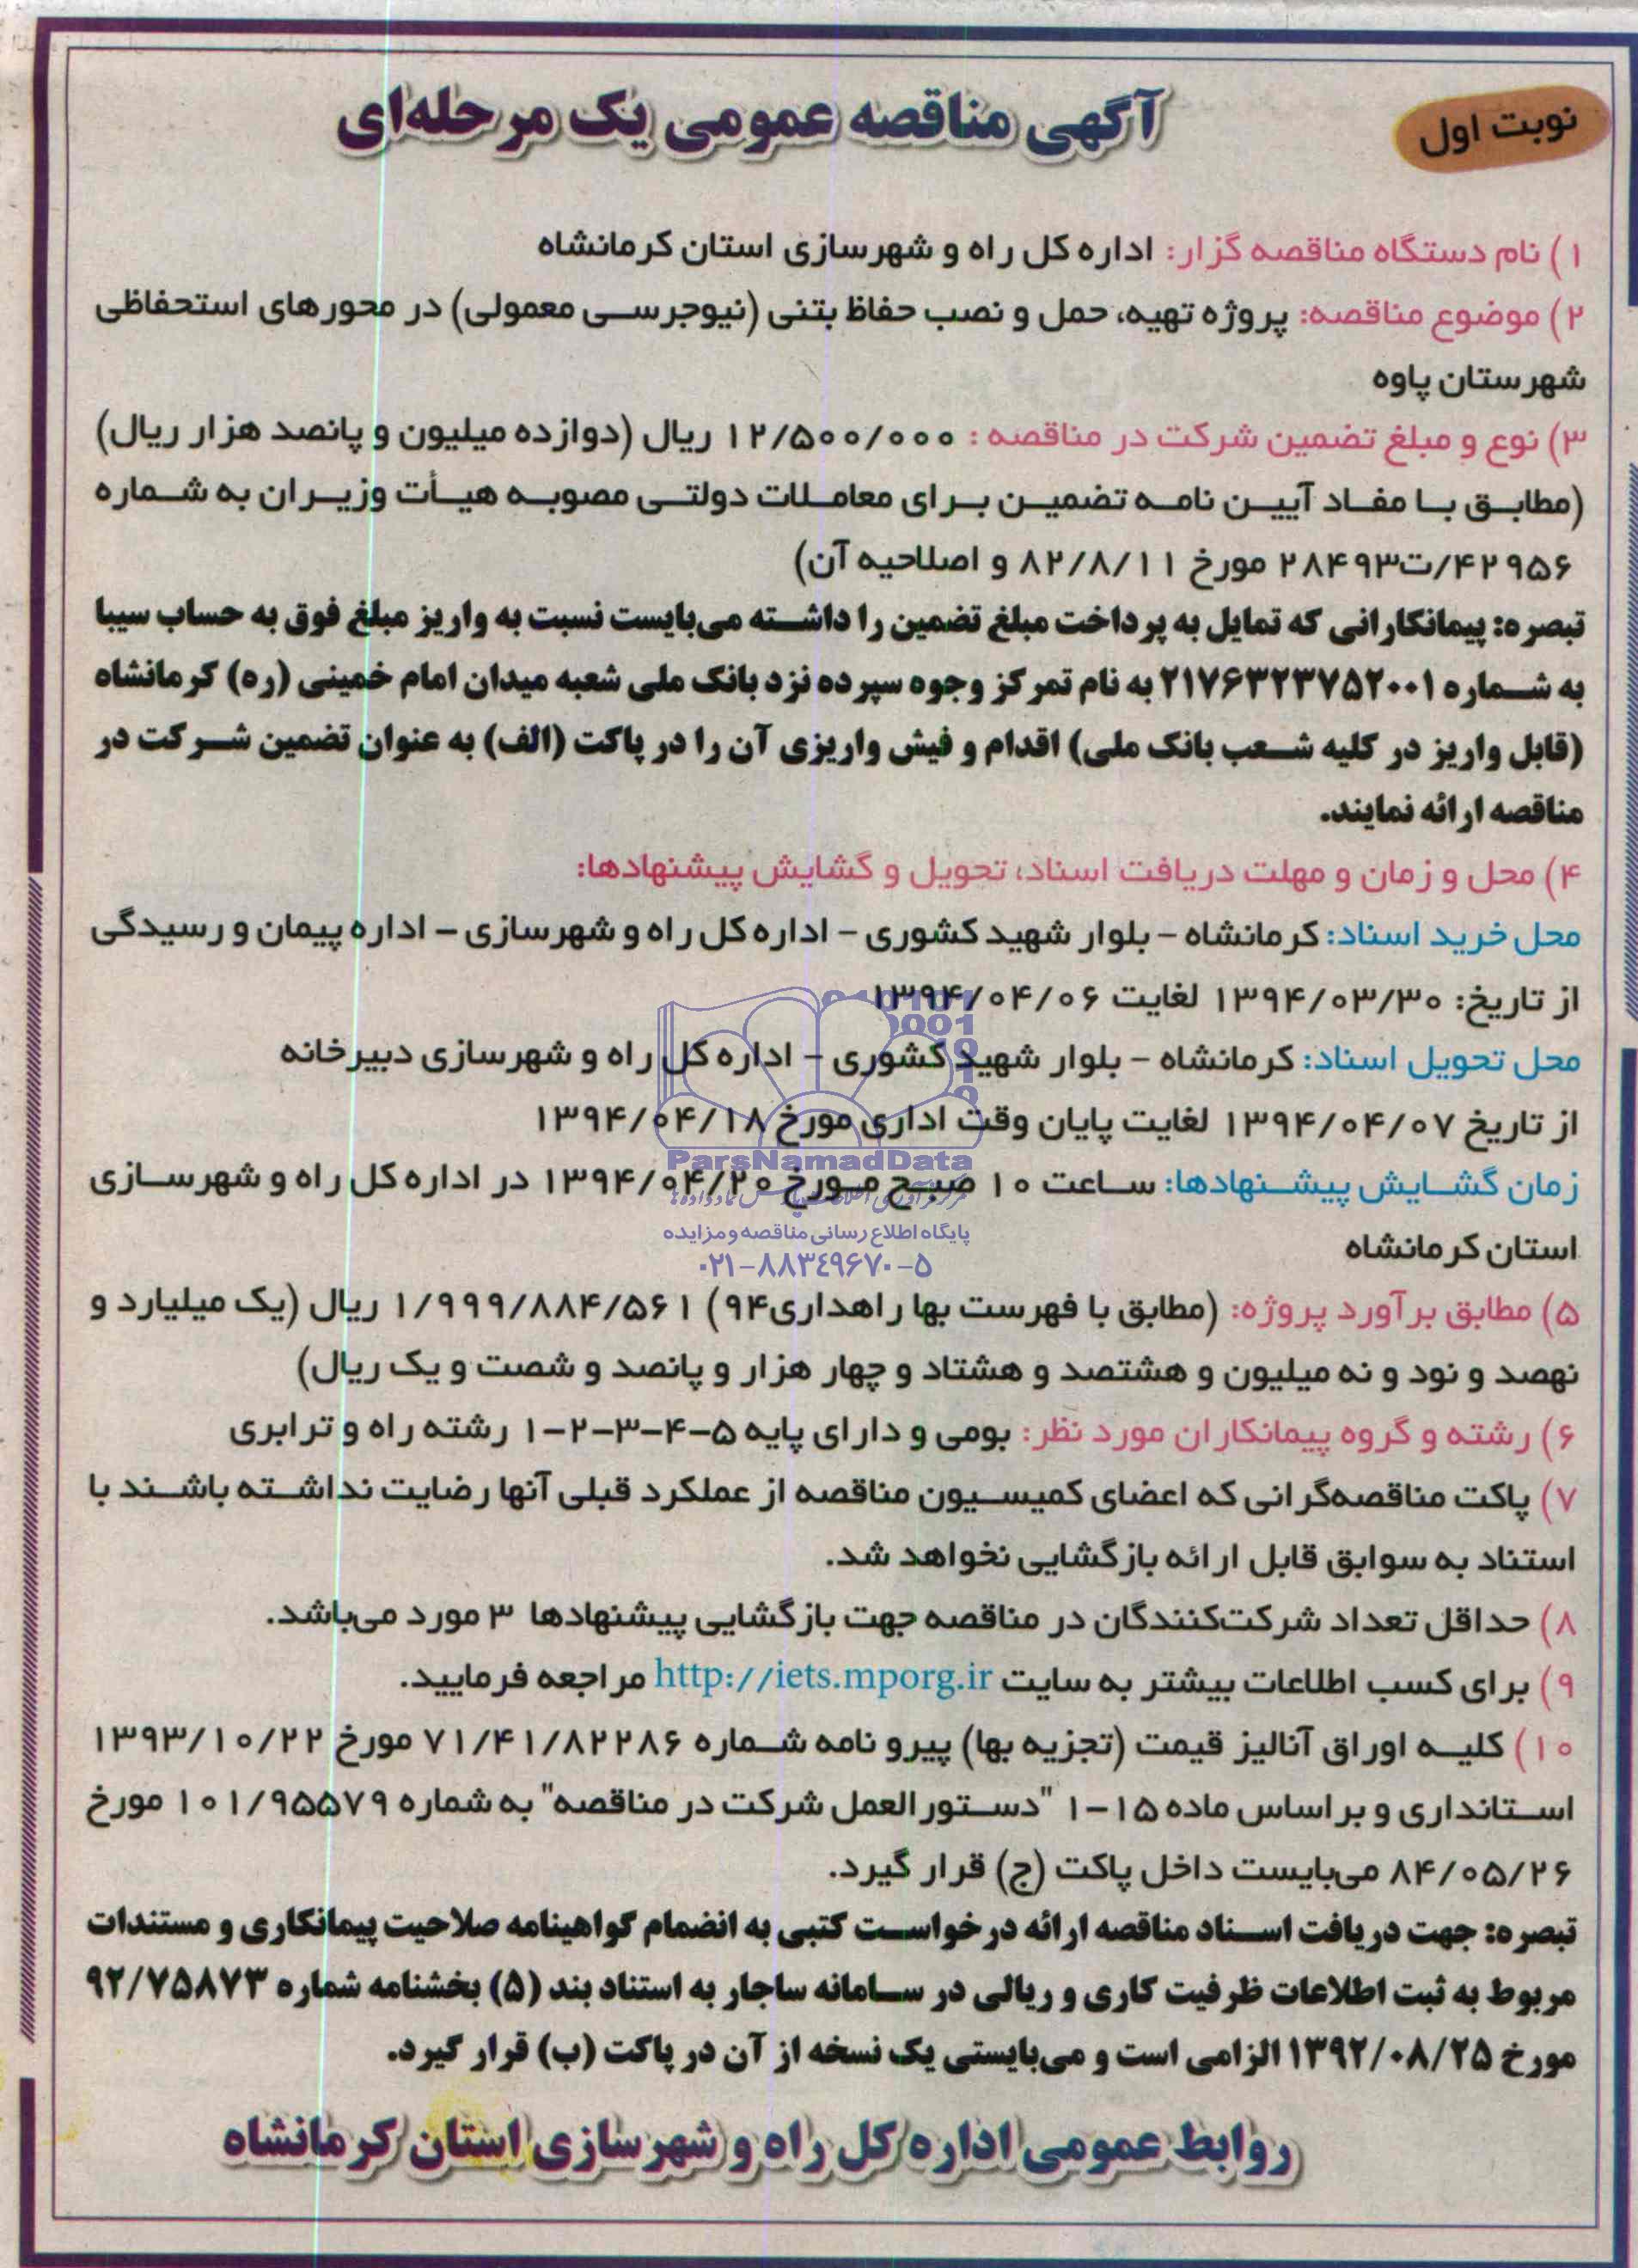 نوبت اول
آگهی مناقصه عمومی یک مرحله‌ای
۱) نام دستگاه مناقصه گزار: اداره کل راه و شهرسازی استان کرمانشاه
۲) موضوع مناقصه: پروژه تهیه، حمل و نصب حفاظ بتنی (نیوجرسی معمولی) در محورهای استحفاظی
شهرستان پاوه
۳) نوع و مبلغ تضمین شرکت در مناقصه : ۱۲/۵۰۰/۰۰۰ ریال (دوازده میلیون و پانصد هزار ریال)
(مطابق با مفاد آیین نامه تضمین برای معاملات دولتی مصوبه هیأت وزیران به شماره
۴۲۹۵۶/ت۲۸۴۹۳ مورخ ۸۲/۸/۱۱ و اصلاحیه آن)
تبصره: پیمانکارانی که تمایل به پرداخت مبلغ تضمین را داشته می‌بایست نسبت به واریز مبلغ فوق به حساب سیبا
به شماره ۲۱۷۶۳۲۳۷۵۲۰۰۱ به نام تمرکز وجوه سپرده نزد بانک ملی شعبه میدان امام خمینی (ره) کرمانشاه
(قابل واریز در کلیه شعب بانک ملی) اقدام و فیش واریزی آن را در پاکت (الف) به عنوان تضمین شرکت در
مناقصه ارائه نمایند.
۴) محل و زمان و مهلت دریافت اسناد، تحویل و گشایش پیشنهادها:
محل خرید اسناد: کرمانشاه – بلوار شهید کشوری – اداره کل راه و شهرسازی – اداره پیمان و رسیدگی
از تاریخ: ۱۳۹۴/۰۳/۳۰ لغایت ۱۳۹۴/۰۴/۰۶
محل تحویل اسناد: کرمانشاه – بلوار شهید کشوری – اداره کل راه و شهرسازی دبیرخانه
از تاریخ ۱۳۹۴/۰۴/۰۷ لغایت پایان وقت اداری مورخ ۱۳۹۴/۰۴/۱۸
ParsNamadData
زمان گشایش پیشنهادها: ساعت ۱۰ صبح مورخ ۱۳۹۴/۰۴/۲۰ در اداره کل راه و شهرسازی
پایگاه اطلاع رسانی مناقصه و مزایده
استان کرمانشاه
۰۲۱-۸۸۳۴۹۶۷۰-۵
۵) مطابق برآورد پروژه: (مطابق با فهرست بها راهداری۹۴) ۱/۹۹۹/۸۸۴/۵۶۱ ریال (یک میلیارد و
نهصد و نود و نه میلیون و هشتصد و هشتاد و چهار هزار و پانصد و شصت و یک ریال)
۶) رشته و گروه پیمانکاران مورد نظر: بومی و دارای پایه ۵-۴-۳-۲-۱ رشته راه و ترابری
۷) پاکت مناقصه‌گرانی که اعضای کمیسیون مناقصه از عملکرد قبلی آنها رضایت نداشته باشند با
استناد به سوابق قابل ارائه بازگشایی نخواهد شد.
۸) حداقل تعداد شرکت‌کنندگان در مناقصه جهت بازگشایی پیشنهادها ۳ مورد می‌باشد.
۹) برای کسب اطلاعات بیشتر به سایت http://iets.mporg.ir مراجعه فرمایید.
۱۰) کلیه اوراق آنالیز قیمت (تجزیه بها) پیرو نامه شماره ۷۱/۴۱/۸۲۲۸۶ مورخ ۱۳۹۳/۱۰/۲۲
استانداری و بر اساس ماده ۱۵-۱ "دستورالعمل شرکت در مناقصه" به شماره ۱۰۱/۹۵۵۷۹ مورخ
۸۴/۰۵/۲۶ می‌بایست داخل پاکت (ج) قرار گیرد.
تبصره: جهت دریافت اسناد مناقصه ارائه درخواست کتبی به انضمام گواهینامه صلاحیت پیمانکاری و مستندات
مربوط به ثبت اطلاعات ظرفیت کاری و ریالی در سامانه ساجار به استناد بند (۵) بخشنامه شماره ۹۲/۷۵۸۷۳
مورخ ۱۳۹۲/۰۸/۲۵ الزامی است و می‌بایستی یک نسخه از آن در پاکت (ب) قرار گیرد.
روابط عمومی اداره کل راه و شهرسازی استان کرمانشاه